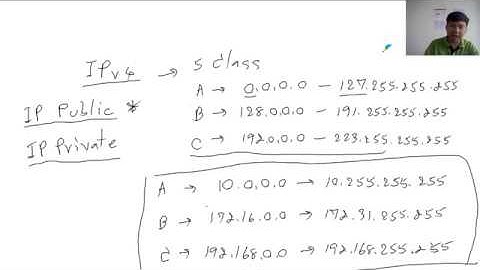 IPv4 → 5 class
A → 0.0.0.0 – 127.255.255.255
IP Public *
B → 128.0.0.0 – 191.255.255.255
IP Private
C → 192.0.0.0 – 223.255.255.255
A → 10.0.0.0 → 10.255.255.255
B → 172.16.0.0 → 172.31.255.255
C → 192.168.0.0 → 192.168.255.255